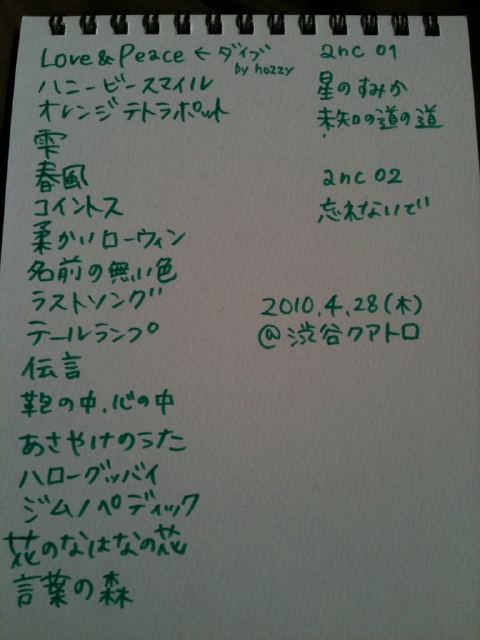 Love & Peace ← ダイブ
by hozzy
ハニービースマイル
オレンジテトラポット
雫
春風
コイントス
柔かいローウィン
名前の無い色
ラストソング
テールランプ
伝言
鞄の中、心の中
あさやけのうた
ハローグッバイ
ジムノペディック
花のなはなの花
言葉の森
anc 01
星のすみか
未知の道の道
anc 02
忘れないで
2010.4.28(木)
@渋谷クアトロ